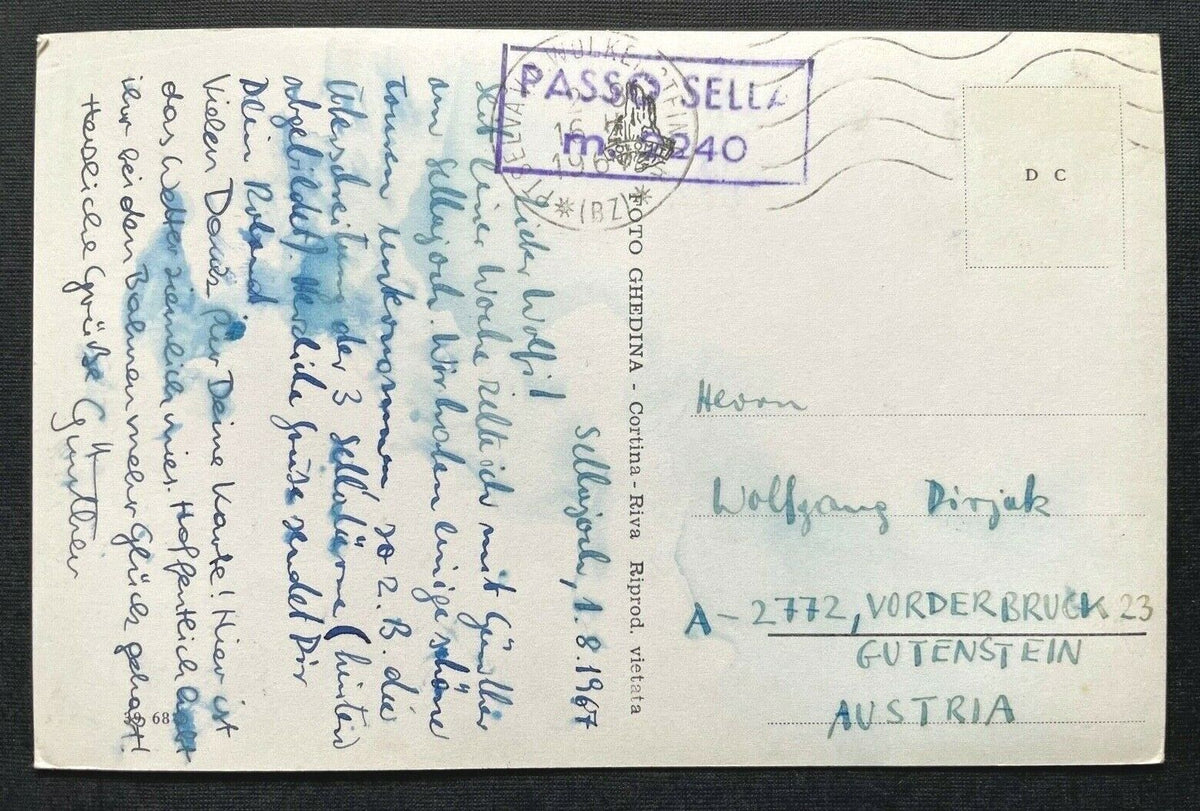 Sellajoch, 1.8.1967
Lieber Wolfi!
Seit einer Woche zelte ich mit Günther
am Sellajoch. Wir haben einige schöne
Touren unternommen, so z.B. die
Überschreitung der 3 Sellatürme (hinten
abgebildet). Herzliche Grüße sendet Dir
Dein Roland
Vielen Dank für Deine Karte! Hier ist
das Wetter ziemlich mies. Hoffentlich habt
ihr bei den mehr Glück gehabt!
Herzliche Grüße Günther
39 68
FOTO GHEDINA - Cortina - Riva Riprod. vietata
PASSO SELLA
m. 2240
SELVA WOLKENSTEIN
16
196
DOLOMITI
(BZ)
D C
Herrn
Wolfgang Dirjak
A-2772, VORDERBRUCK 23
GUTENSTEIN
AUSTRIA